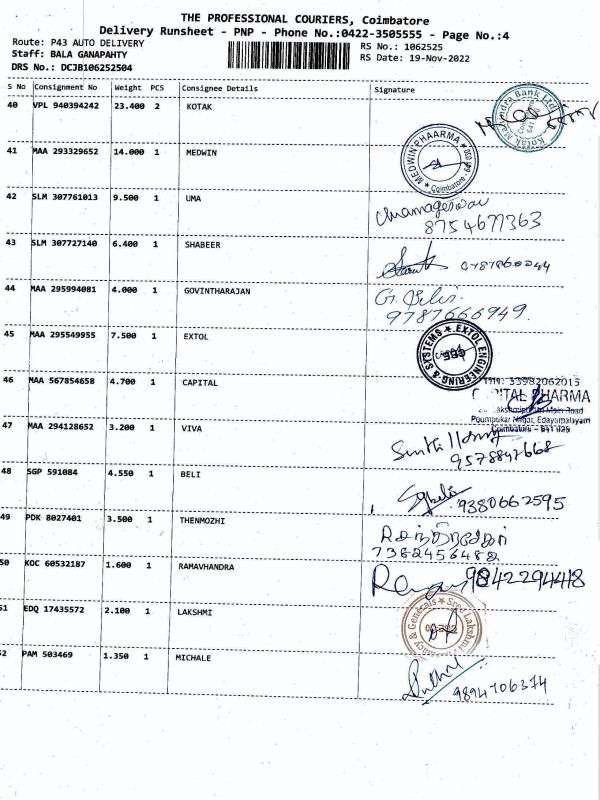 THE PROFESSIONAL COURIERS, Coimbatore
Delivery Runsheet - PNP - Phone No.:0422-3505555 - Page No.:4
Route: P43 AUTO DELIVERY RS No.: 1062525
Staff: BALA GANAPAHTY RS Date: 19-Nov-2022
DRS No.: DCJB106252504
S No Consignment No Weight PCS Consignee Details Signature
40 VPL 940394242 23.400 2 KOTAK
Kotak Mahindra Bank Ltd
41 MAA 293329652 14.000 1 MEDWIN
MEDWIN PHAARMA
Coimbatore - 641 002
42 SLM 307761013 9.500 1 UMA
8754677363
43 SLM 307727140 6.400 1 SHABEER
44 MAA 295994081 4.000 1 GOVINTHARAJAN
9787666949.
45 MAA 295549955 7.500 1 EXTOL
EXTOL ENGINEERING & SYSTEMS
CBE
46 MAA 567854658 4.700 1 CAPITAL
33982062015
CAPITAL PHARMA
Main Road
Nagar, Edayarpalayam
Coimbatore - 641 025
47 MAA 294128652 3.200 1 VIVA
9578842668
48 SGP 591084 4.550 1 BELI
9380662595
49 PDK 8027401 3.500 1 THENMOZHI
7362456482
50 KOC 60532187 1.600 1 RAMAVHANDRA
9842294418
51 EDQ 17435572 2.100 1 LAKSHMI
Sree Lakshmi
& Generals
52 PAM 503469 1.350 1 MICHALE
9894706374